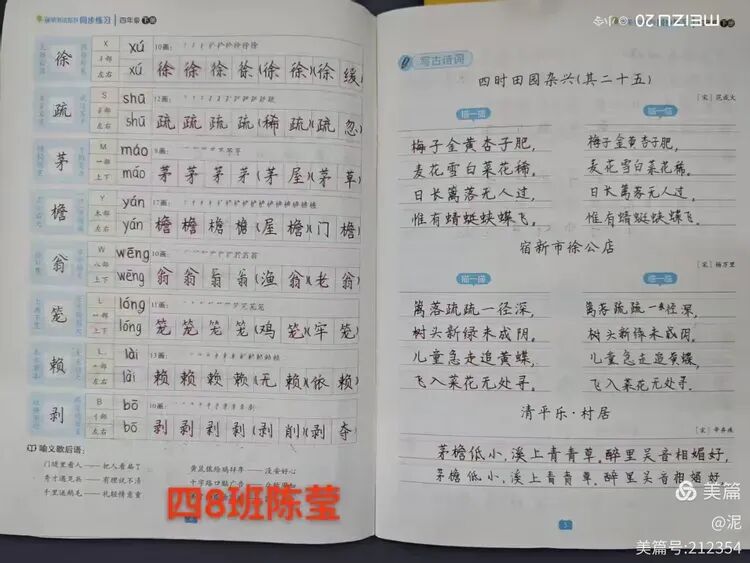 同步练习 四年级 下册
徐 X xú 10画:
彳部 xú 徐 徐 徐 徐 (徐 徐)(徐 缓)
左右
疏 S shū 12画:
shū 疏 疏 疏 疏 (稀 疏)(疏 忽)
左右
茅 M máo 8画:
máo 茅 茅 茅 茅 (茅 屋)(茅 草)
上下
檐 Y yán 17画:
木部 yán 檐 檐 檐 檐 (屋 檐)(门 檐)
左右
翁 W wēng 10画:
wēng 翁 翁 翁 翁 (渔 翁)(老 翁)
上下
笼 L lóng 11画:
lóng 笼 笼 笼 笼 (鸡 笼)(牢 笼)
上下
赖 L lài 13画:
lài 赖 赖 赖 赖 (无 赖)(依 赖)
左右
剥 B bō 10画:
bō 剥 剥 剥 剥 (剥 削)(剥 夺)
左右
喻义歇后语:
门缝里看人——把人看扁了
黄鼠狼给鸡拜年——没安好心
秀才遇见兵——有理说不清
十字路口贴广告——
千里送鹅毛——礼轻情意重
四8班陈莹
MEIZU 20
写古诗词
四时田园杂兴(其二十五)
[宋] 范成大
描一描 临一临
梅子金黄杏子肥, 梅子金黄杏子肥,
麦花雪白菜花稀。 麦花雪白菜花稀。
日长篱落无人过, 日长篱落无人过,
惟有蜻蜓蛱蝶飞。 惟有蜻蜓蛱蝶飞。
宿新市徐公店
[宋] 杨万里
描一描 临一临
篱落疏疏一径深, 篱落疏疏一径深,
树头新绿未成阴。 树头新绿未成阴。
儿童急走追黄蝶, 儿童急走追黄蝶,
飞入菜花无处寻。 飞入菜花无处寻。
清平乐·村居
[宋] 辛弃疾
茅檐低小,溪上青青草。醉里吴音相媚好,
茅檐低小,溪上青青草。醉里吴音相媚好
3
美篇
@泥
美篇号:212354